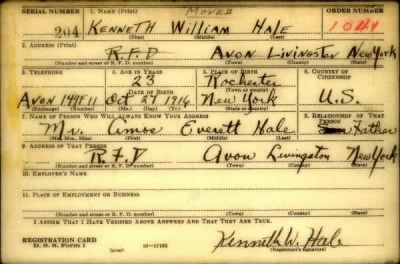 SERIAL NUMBER 1. NAME (Print) MOVED ORDER NUMBER
204 KENNETH William Hale 1044
(First) (Middle) (Last)
2. ADDRESS (Print)
R.F.D Avon Livingston New York
(Number and street or R. F. D. number) (Town) (County) (State)
3. TELEPHONE 4. AGE IN YEARS 5. PLACE OF BIRTH 6. COUNTRY OF CITIZENSHIP
23 Rochester
DATE OF BIRTH (Town or county)
Avon 149F11 Oct 27 1916 New York U.S.
(Exchange) (Number) (Mo.) (Day) (Yr.) (State or country)
7. NAME OF PERSON WHO WILL ALWAYS KNOW YOUR ADDRESS 8. RELATIONSHIP OF THAT PERSON
Mr. Amos Everett Hale Father
(Mr., Mrs., Miss) (First) (Middle) (Last)
9. ADDRESS OF THAT PERSON
R.F.D Avon Livingston New York
(Number and street or R. F. D. number) (Town) (County) (State)
10. EMPLOYER'S NAME
11. PLACE OF EMPLOYMENT OR BUSINESS
(Number and street or R. F. D. number) (Town) (County) (State)
I AFFIRM THAT I HAVE VERIFIED ABOVE ANSWERS AND THAT THEY ARE TRUE.
REGISTRATION CARD
D. S. S. Form 1 (over) 16—17105 Kenneth W. Hale
(Registrant's signature)